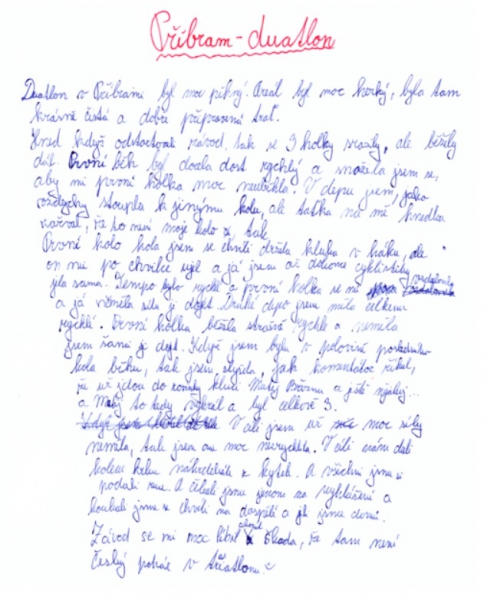 Příbram - duatlon
Duatlon v Příbrami byl moc pěkný. Areál byl moc hezký, byla tam
krásně čistá a dobře připravená trať.
Hned když odstartovali závod, tak se 3 holky srazily, ale běžely
dál. První běh byl docela dost rychlý a snažila jsem se,
aby mi první holka moc neutekla. V depu jsem, jako
vždycky stoupla k jinýmu kolu, ale taťka na mě hnedka
zařval, že to není moje kolo a, tak
První kolo kola jsem se chvíli držela kluka v háku, ale
on mi po chvilce ujel a já jsem až dokonce cyklistiky
jela sama. Tempo bylo rychlé a první holka se mi vzdalovala
a já neměla sílu ji dojet. Druhé depo jsem měla celkem
rychlé. První holka běžela strašně rychle a neměla
jsem šanci ji dojít. Když jsem byla v polovině posledního
kola běhu, tak jsem slyšela, jak komentátor říkal,
že už jdou do konečky kluci Matěj Březina a ještě nějaký...
a Matěj to tedy vyhrál a byl celkově 3.
V cíli jsem už moc síly
neměla, tak jsem ani moc nezrychlila. V cíli nám dali
kolem krku náhrdelník z kytek. A všichni jsme si
podali ruce. A čekali jsme jenom na vyhlášení a
koukali jsme se chvíli na dospělé a jeli jsme domů.
Závod se mi moc líbil akorát škoda, že tam není
Český pohár v triatlonu.